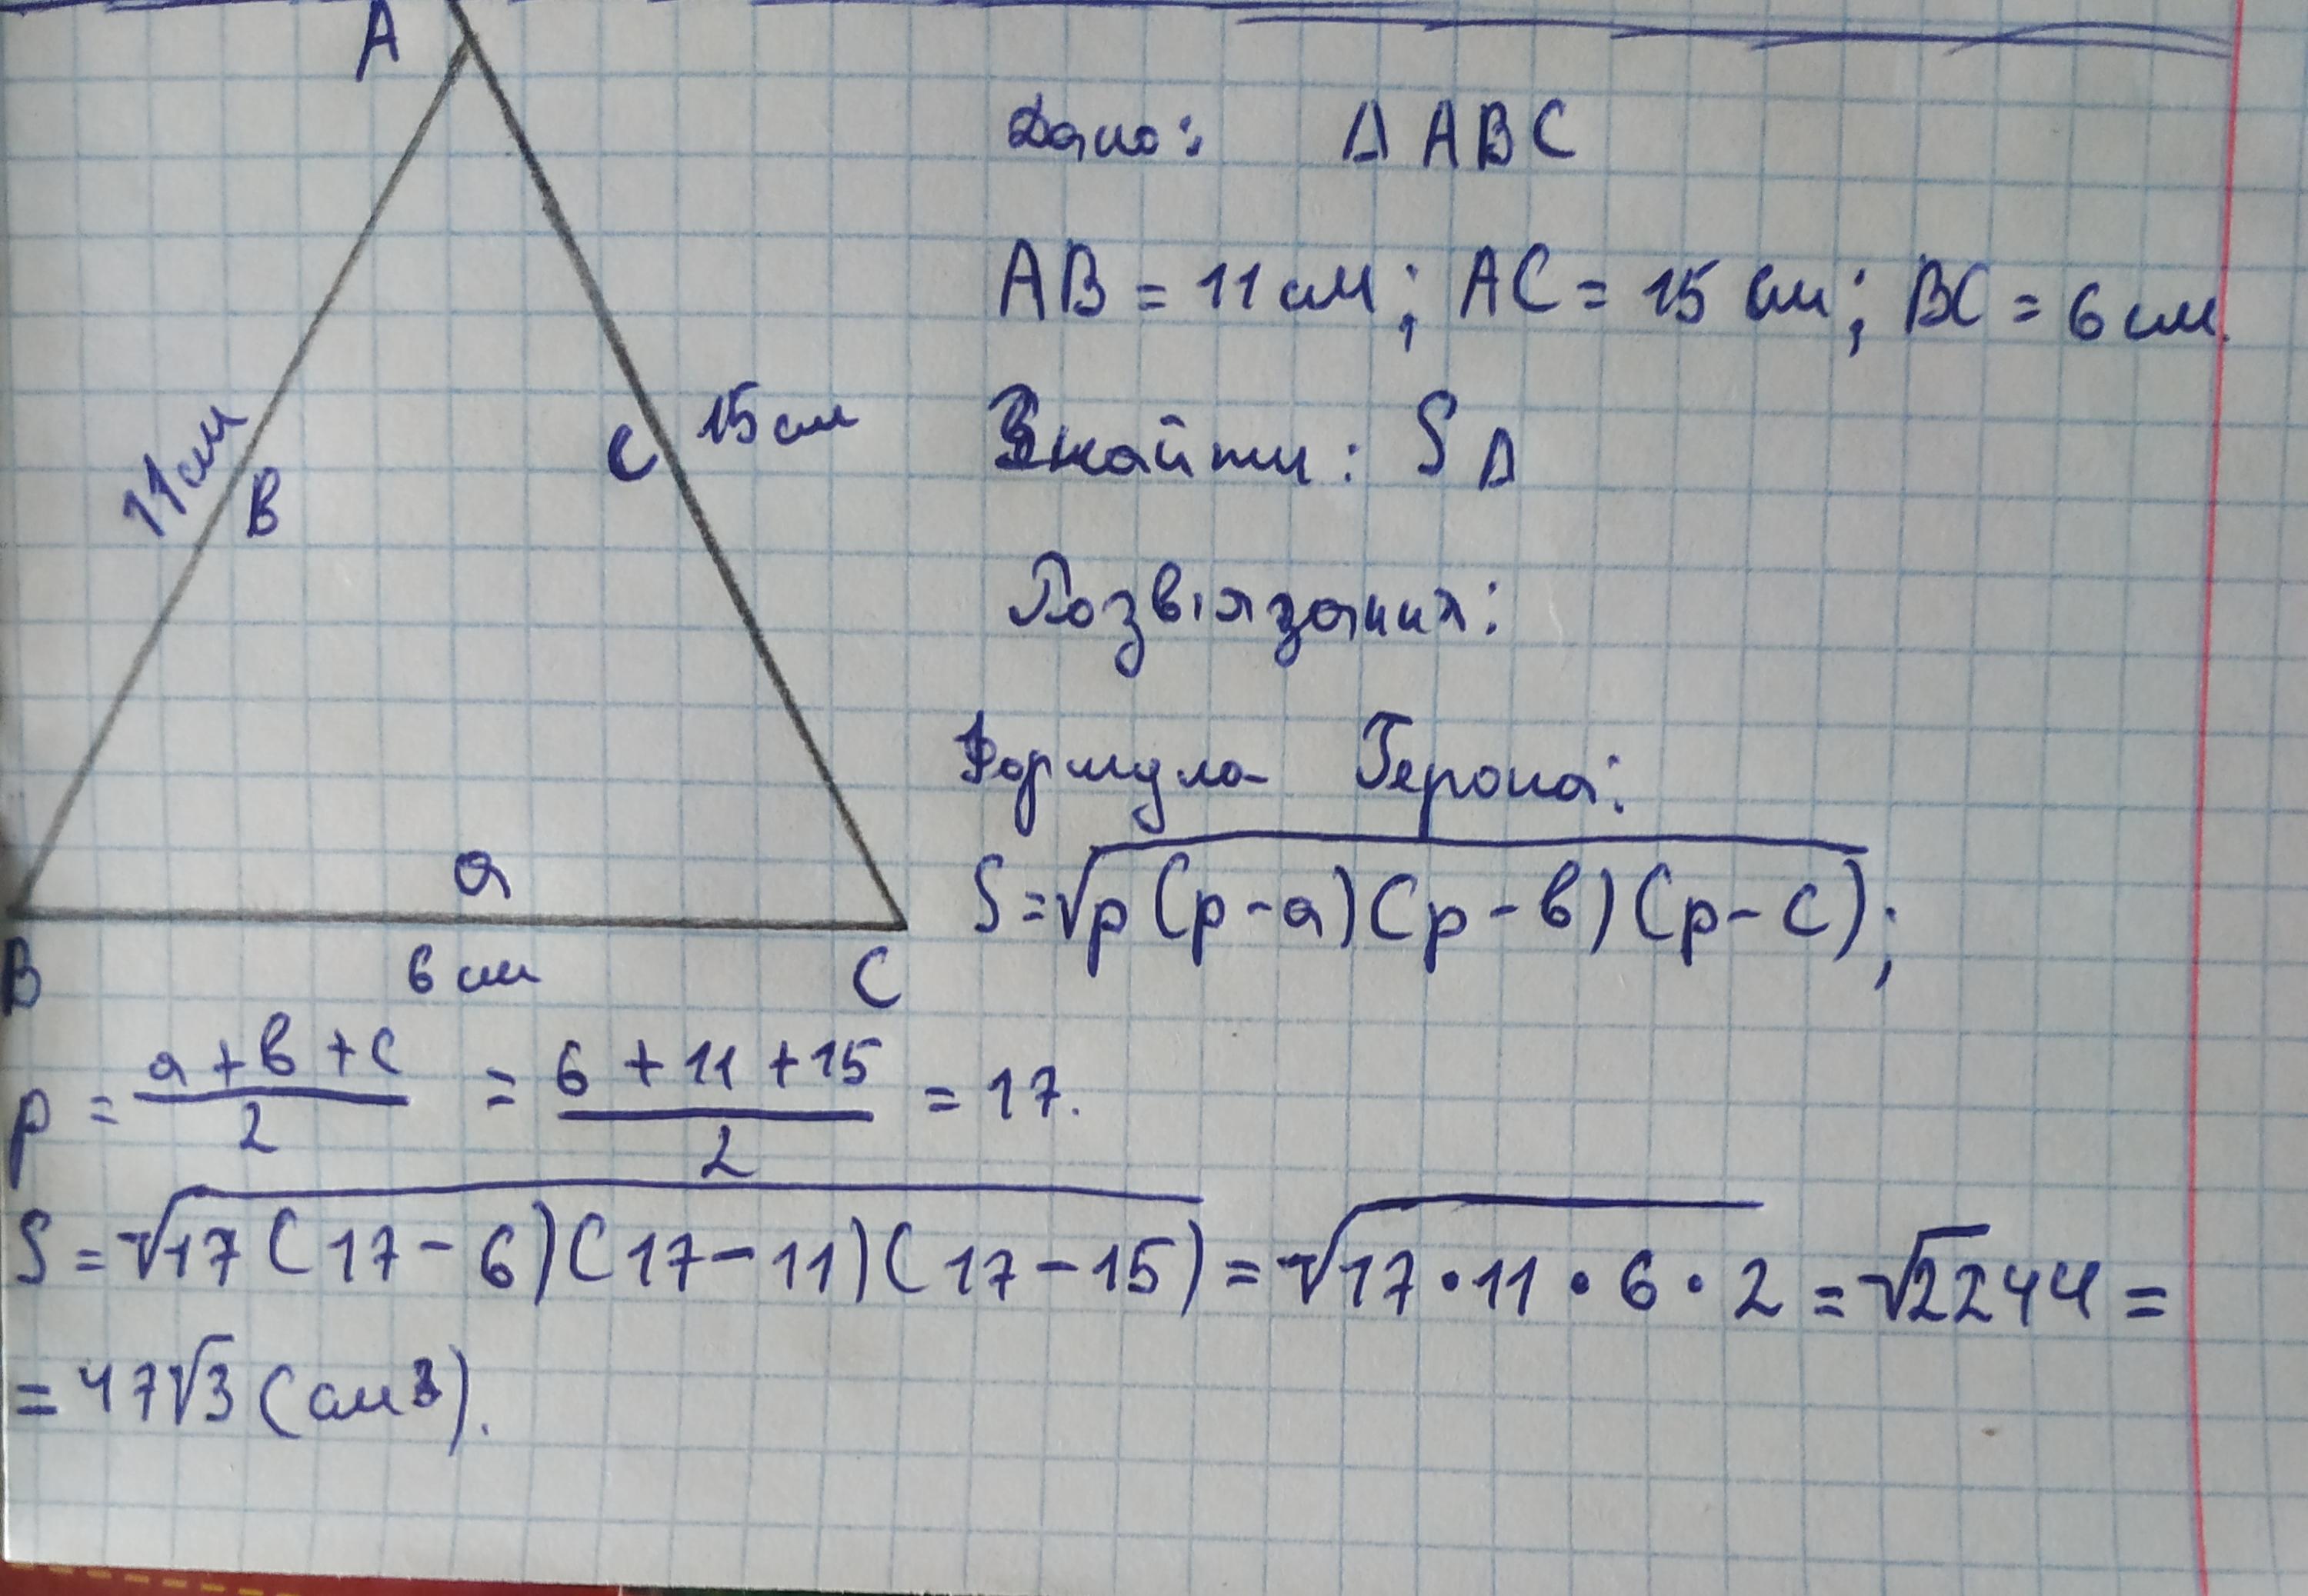 A
11 см
в
с
15 см
а
В
6 см
С
Дано: Δ ABC
AB = 11 см; AC = 15 см; BC = 6 см.
Знайти: S Δ
Розв'язання:
Формула Герона:
S = √p(p - a)(p - в)(p - c);
p = a + в + c / 2 = 6 + 11 + 15 / 2 = 17.
S = √17(17 - 6)(17 - 11)(17 - 15) = √17 · 11 · 6 · 2 = √2244 =
= 47√3 (см³).